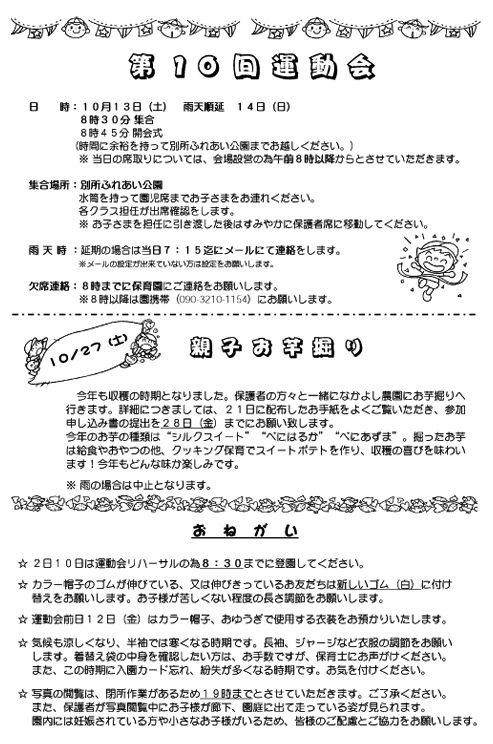 第10回運動会
日　　時：１０月１３日（土）　雨天順延　１４日（日）
８時３０分 集合
８時４５分 開会式
（時間に余裕を持って別所ふれあい公園までお越しください。）
※ 当日の席取りについては、会場設営の為午前８時以降からとさせていただきます。
集合場所：別所ふれあい公園
水筒を持って園児席までお子さまをお連れください。
各クラス担任が出席確認をします。
※ お子さまを担任に引き渡した後はすみやかに保護者席に移動してください。
雨 天 時：延期の場合は当日７：１５迄にメールにて連絡をします。
※メールの設定が出来ていない方は設定をお願いします。
欠席連絡：８時までに保育園にご連絡をお願いします。
※８時以降は園携帯（090-3210-1154）にお願いします。
10/27（土）
親子お芋掘り
今年も収穫の時期となりました。保護者の方々と一緒になかよし農園にお芋掘りへ
行きます。詳細につきましては、２１日に配布したお手紙をよくご覧いただき、参加
申し込み書の提出を２８日（金）までにお願い致します。
今年のお芋の種類は“シルクスイート”“べにはるか”“べにあずま”。掘ったお芋
は給食やおやつの他、クッキング保育でスイートポテトを作り、収穫の喜びを味わい
ます！今年もどんな味か楽しみです。
※ 雨の場合は中止となります。
おねがい
☆ ２日１０日は運動会リハーサルの為８：３０までに登園してください。
☆ カラー帽子のゴムが伸びている、又は伸びきっているお友だちは新しいゴム（白）に付け
替えをお願いします。お子様が苦しくない程度の長さ調節をお願いします。
☆ 運動会前日１２日（金）はカラー帽子、おゆうぎで使用する衣装をお預かりいたします。
☆ 気候も涼しくなり、半袖では寒くなる時期です。長袖、ジャージなど衣服の調節をお願い
します。着替え袋の中身を確認したい方は、お手数ですが、保育士にお声がけください。
また、この時期に入園カード忘れ、紛失が多くなる時期です。お気を付けください。
☆ 写真の閲覧は、閉所作業があるため１９時までとさせていただきます。ご了承ください。
また、保護者が写真閲覧中にお子様が廊下、園庭に出て走っている姿が見られます。
園内には妊娠されている方や小さなお子様がいるため、皆様のご配慮とご協力をお願いします。